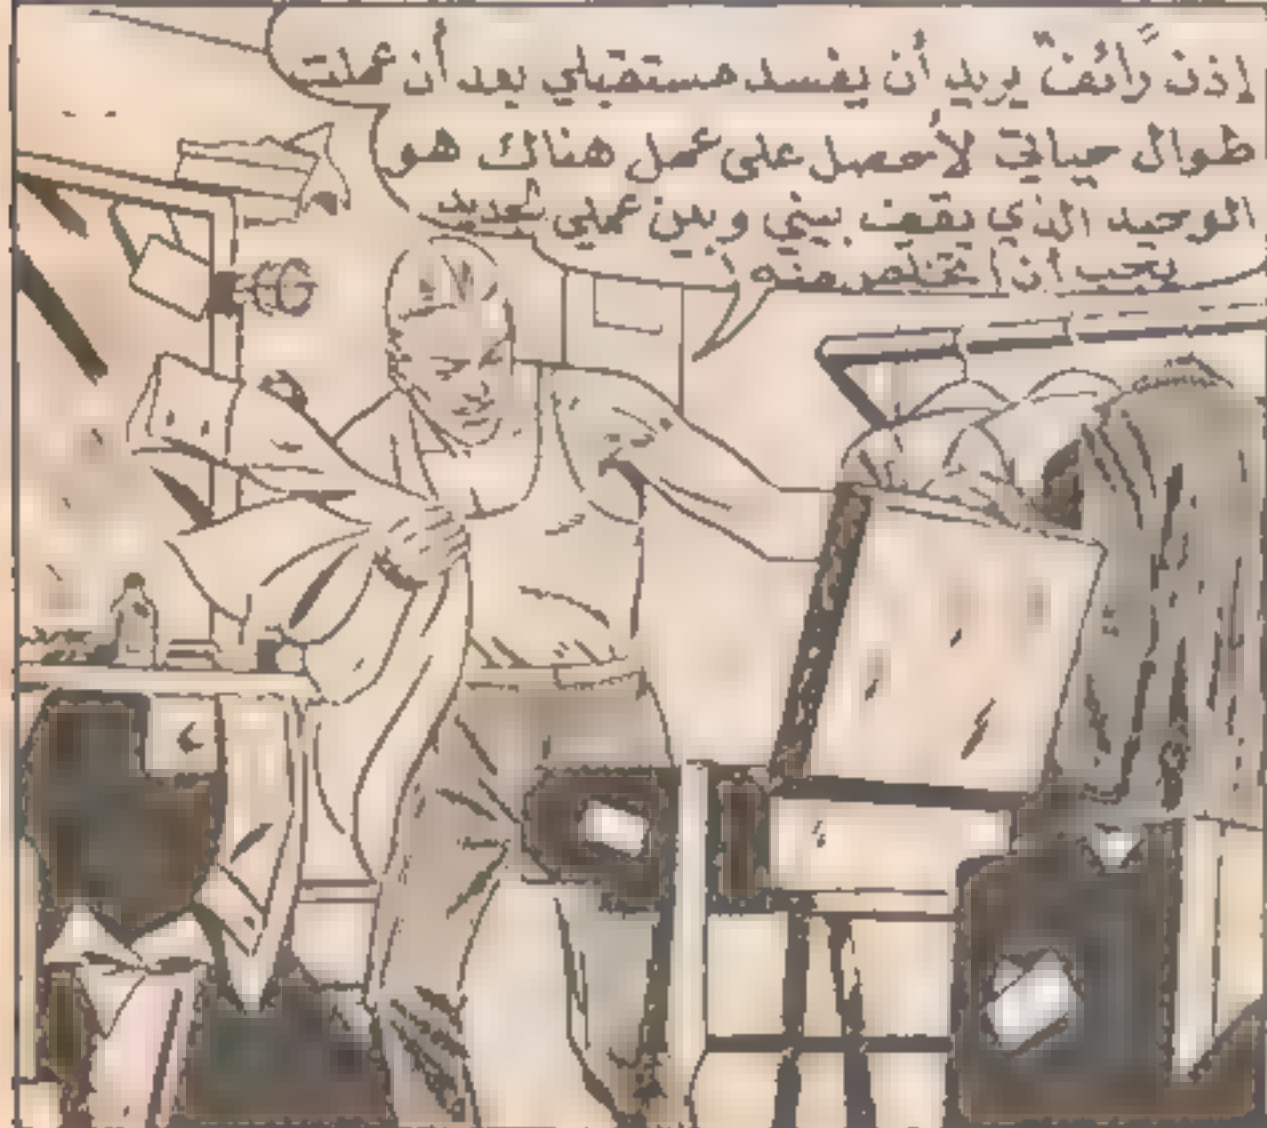 إذن رائف يريد أن يفسد مستقبلي بعد أن عملت
طوال حياتي لأحصل على عمل هناك هو
الوحيد الذي يقف بيني وبين عملي الجديد
يجب أن أتخلص منه !